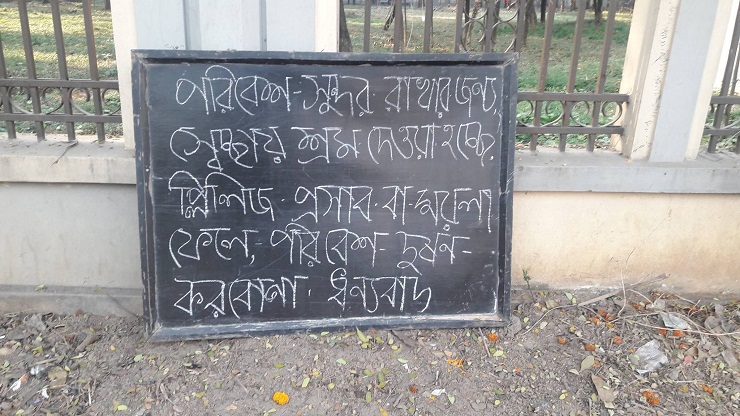 পরিবেশ-সুন্দর রাখার জন্য,
সেচ্ছায় শ্রম দেওয়া হচ্ছে,
প্লিলিজ · প্রসাব · বা-ময়লা
ফেলে,-পরিবেশ-দুষন-
করবোনা · ধন্যবাদ